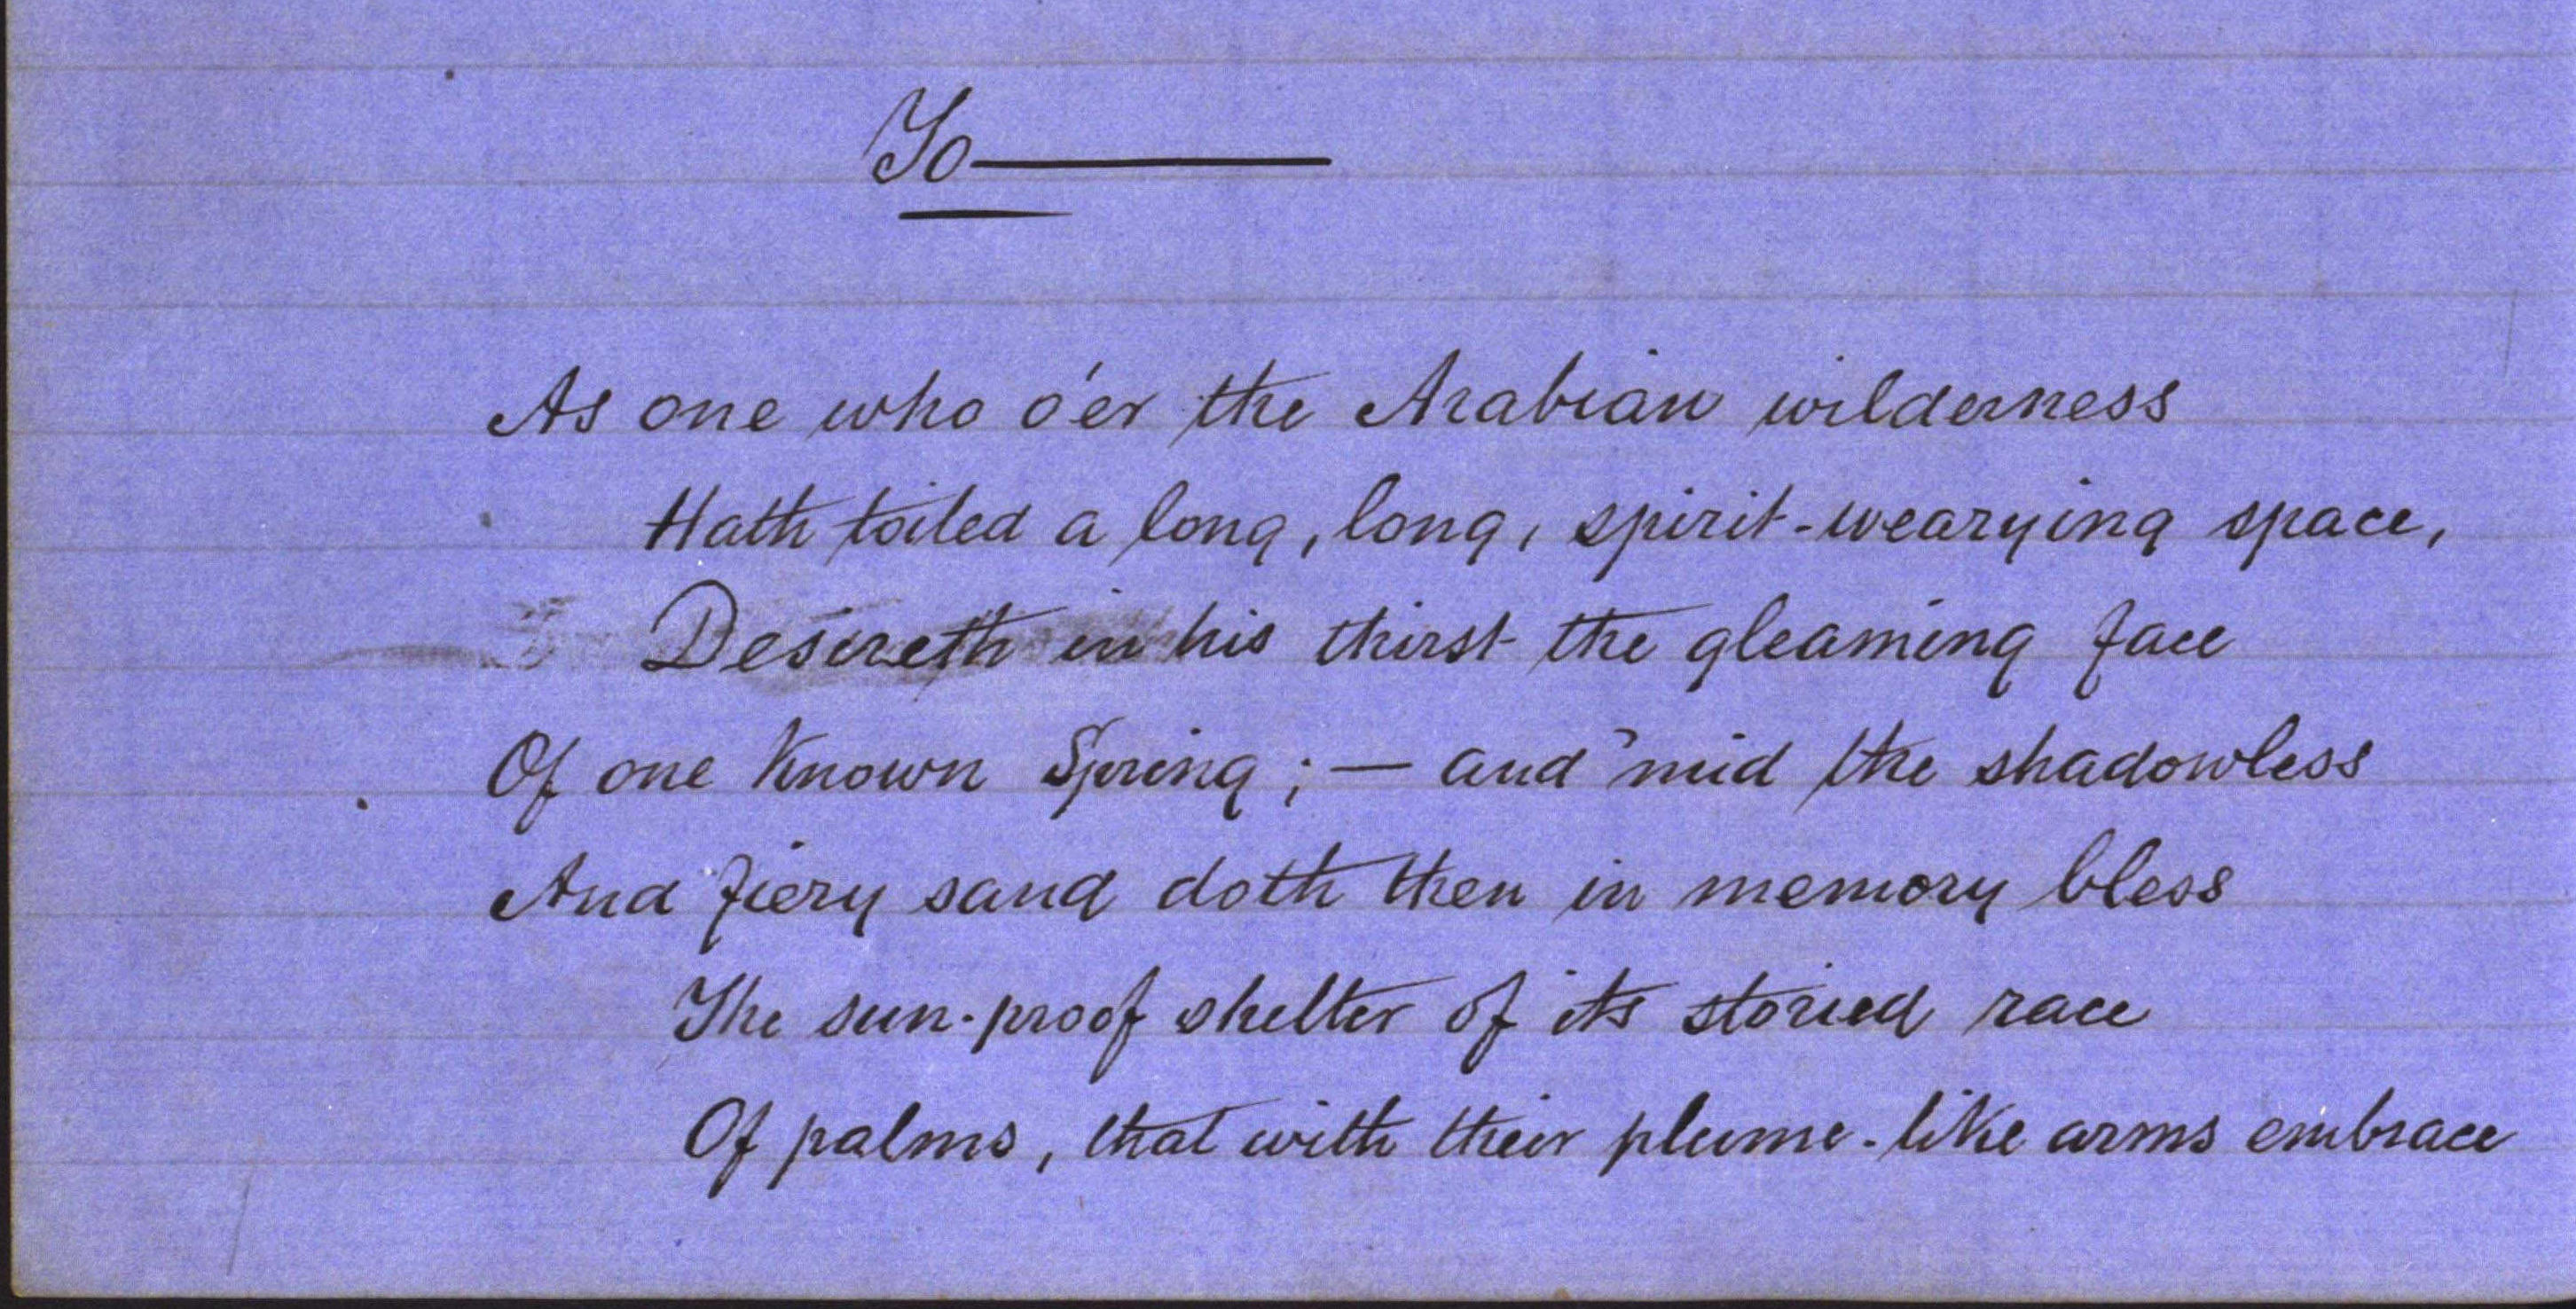 To———
As one who o'er the Arabian wilderness
Hath toiled a long, long, spirit-wearying space,
Desireth in his thirst the gleaming face
Of one known Spring; — and 'mid the shadowless
And fiery sand doth then in memory bless
The sun-proof shelter of its storied race
Of palms, that with their plume-like arms embrace